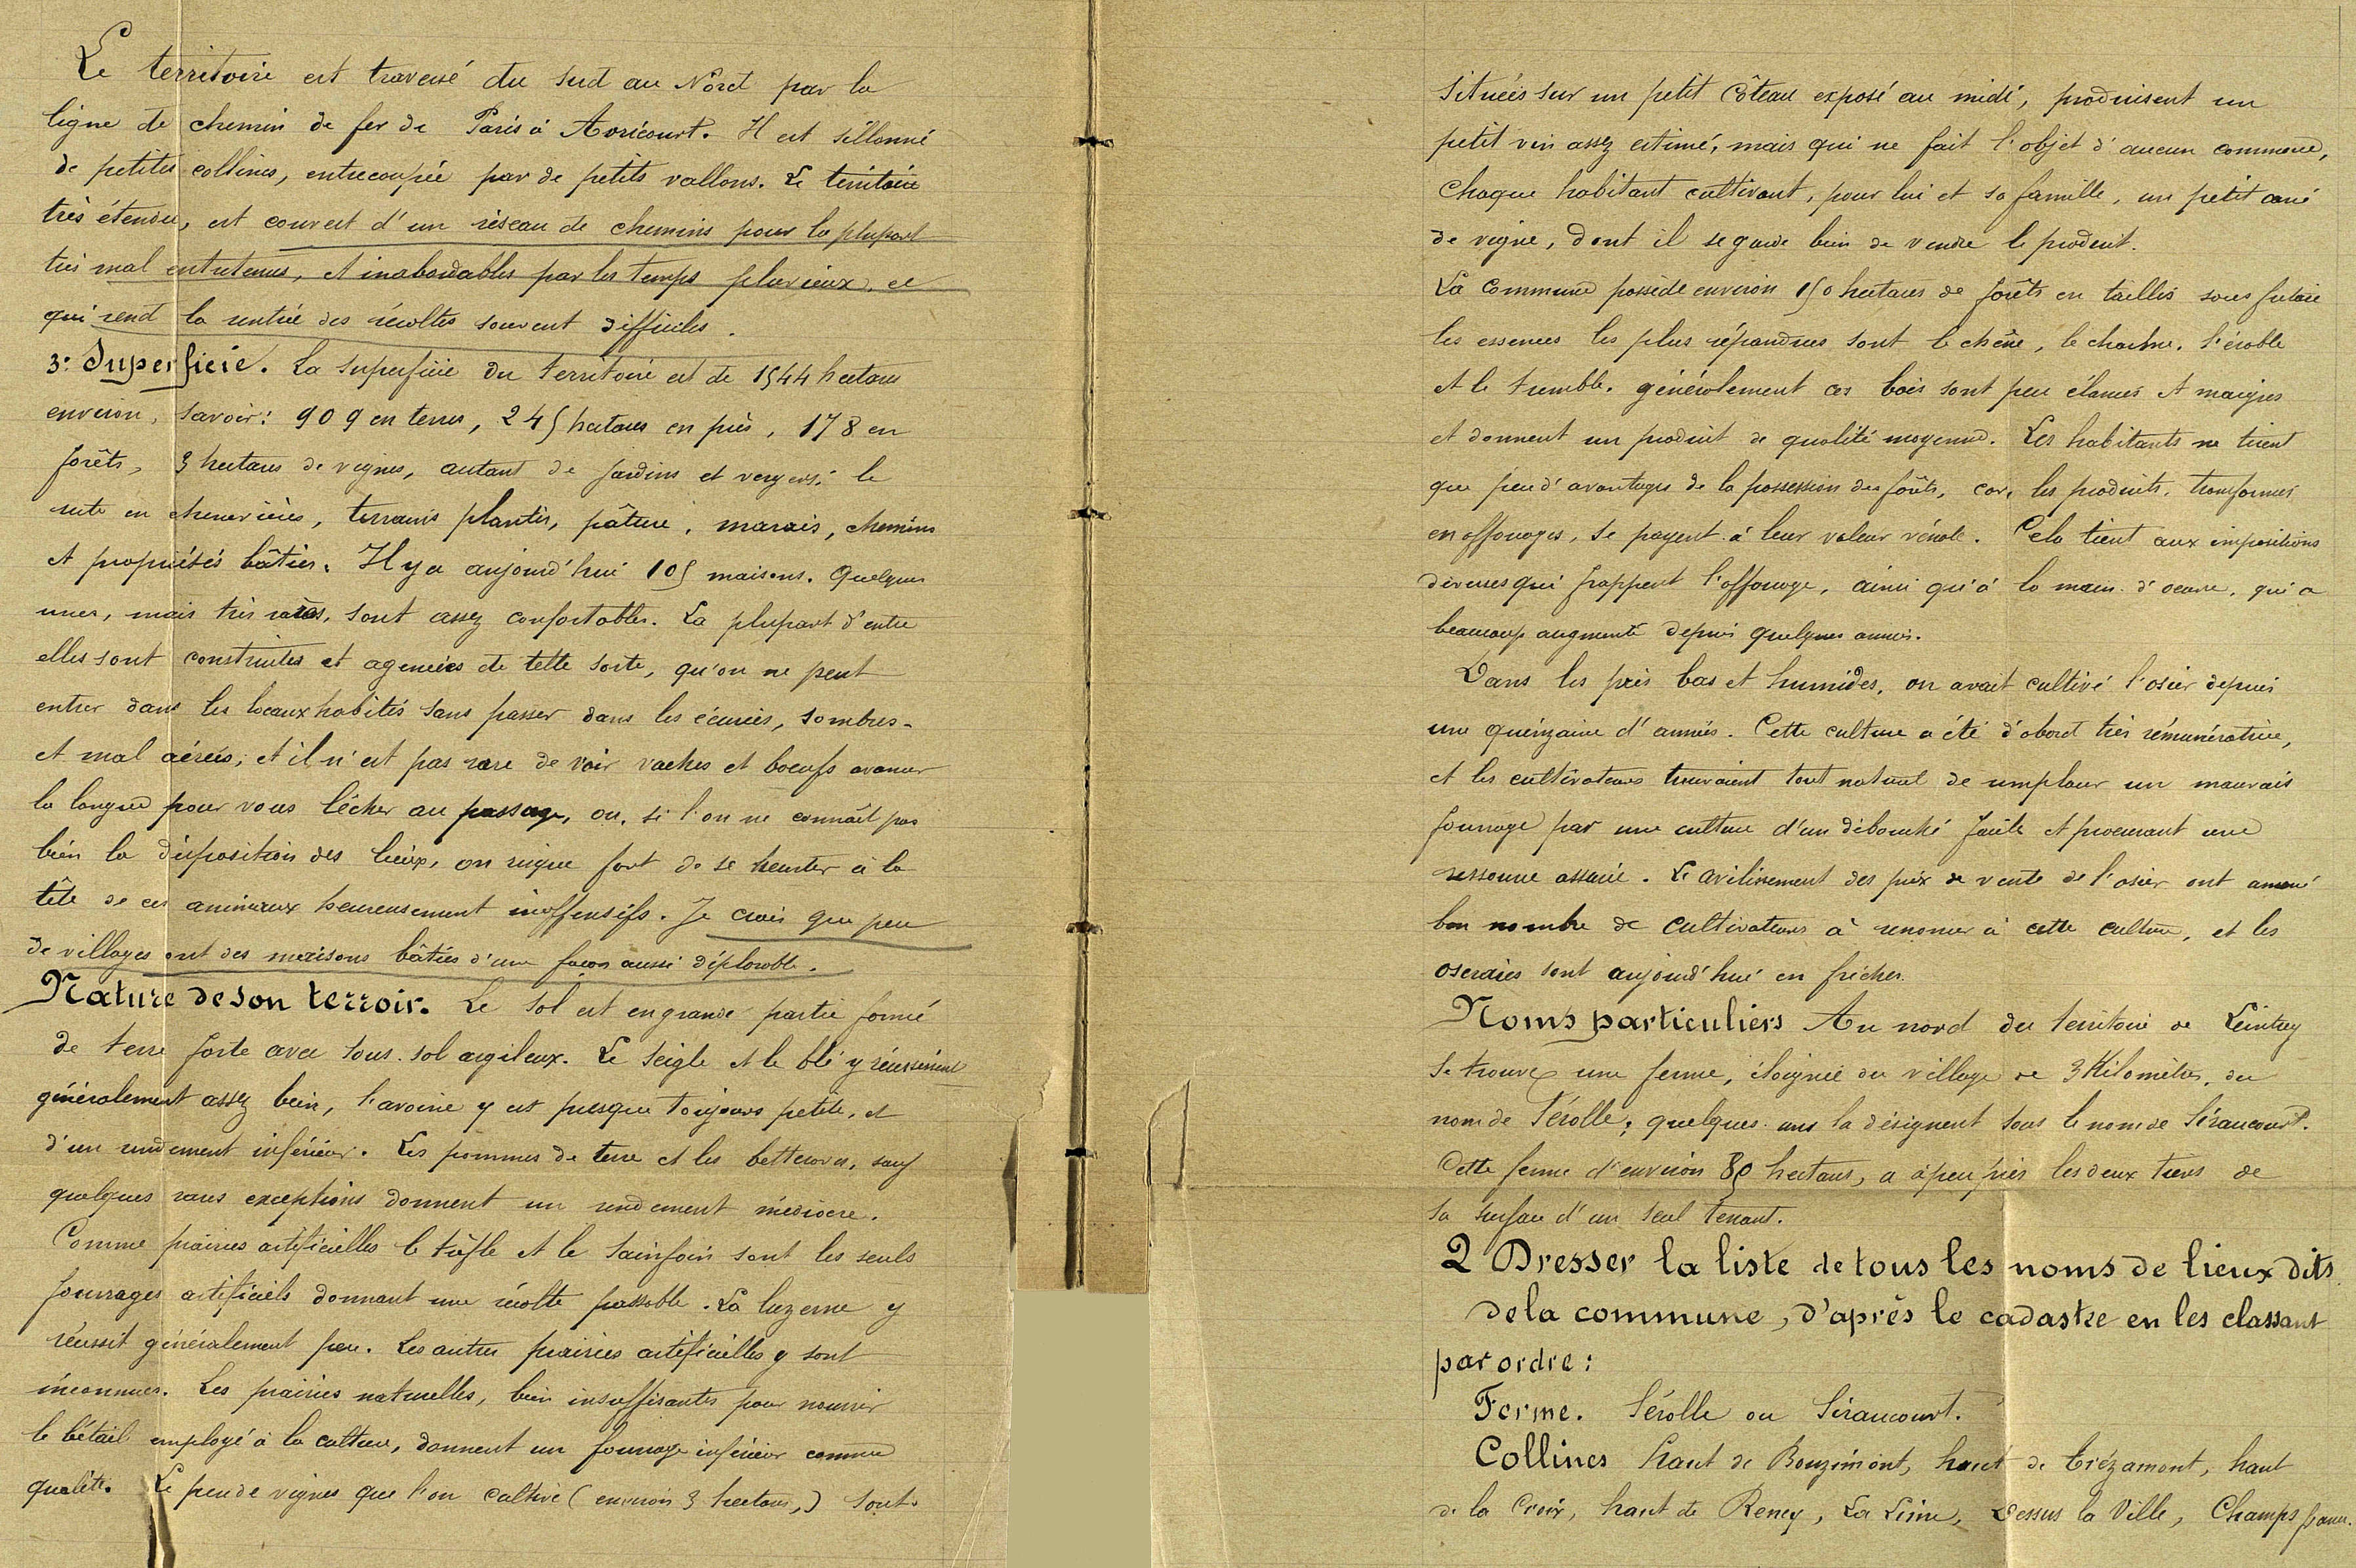 Le territoire est traversé du Sud au Nord par la
ligne de chemin de fer de Paris à Avricourt. Il est sillonné
de petites collines, entrecoupée par de petits vallons. Le territoire
très étendu, est couvert d'un réseau de chemins pour la plupart
très mal entretenus, et inabordables par les temps pluvieux, ce
qui rend la rentrée des récoltes souvent difficiles.
3: Superficie. La superficie du territoire est de 1544 hectares
environ, savoir: 909 en terres, 245 hectares en près, 178 en
forêts, 3 hectares de vignes, autant de jardins et vergers; le
reste en chenevières, terrains plantés, pâture, marais, chemins
et propriétés bâties. Il y a aujourd'hui 105 maisons. Quelques
unes, mais très rares, sont assez confortables. La plupart d'entre
elles sont construites et agencées de telle sorte, qu'on ne peut
entrer dans les locaux habités sans passer dans les écuries, sombres
et mal aérées; et il n'est pas rare de voir vaches et boeufs avancer
la langue pour vous lécher au passage, ou, si l'on ne connaît pas
bien la disposition des lieux, on risque fort de se heurter à la
tête de ces animaux heureusement inoffensifs. Je crois que peu
de villages ont des maisons bâties d'une façon aussi déplorable.
Nature de son terroir. Le sol est en grande partie formé
de terre forte avec sous-sol argileux. Le seigle et le blé y réussissent
généralement assez bien, l'avoine y est presque toujours petite, et
d'un rendement inférieur. Les pommes de terre et les betteraves, sauf
quelques rares exceptions donnent un rendement médiocre.
Comme prairies artificielles le trèfle et le sainfoin sont les seuls
fourrages artificiels donnant une récolte passable. La luzerne y
réussit généralement peu. Les autres prairies artificielles y sont
inconnues. Les prairies naturelles, bien insuffisantes pour nourrir
le bétail employé à la culture, donnent un fourrage inférieur comme
qualité. Le peu de vignes que l'on cultive (environ 3 hectares,) sont
situées sur un petit côteau exposé au midi, produisent un
petit vin assez estimé, mais qui ne fait l'objet d'aucun commerce,
chaque habitant cultivant, pour lui et sa famille, un petit carré
de vigne, dont il se garde bien de vendre le produit.
La commune possède environ 150 hectares de forêts en taillis sous futaie
les essences les plus répandues sont le chêne, le charme, l'érable
et le tremble. généralement ces bois sont peu élancés et maigres
et donnent un produit de qualité moyenne. Les habitants ne tirent
que peu d'avantages de la possession des forêts, car, les produits, transformés
en affouages, se payent à leur valeur vénale. Cela tient aux impositions
diverses qui frappent l'affouage, ainsi qu'à la main d'oeuvre, qui a
beaucoup augmenté depuis quelques années.
Dans les prés bas et humides, on avait cultivé l'osier depuis
une quinzaine d'années. Cette culture a été d'abord très rémunératrice,
et les cultivateurs trouvaient tout naturel de remplacer un mauvais
fourrage par une culture d'un débouché facile et procurant une
ressource assurée. Le avilissement des prix de vente de l'osier ont amené
bon nombre de cultivateurs à renoncer à cette culture, et les
oseraies sont aujourd'hui en friches.
Noms particuliers Au nord du territoire de Leintrey
se trouve une ferme, éloignée du village de 3 Kilomètres, du
nom de Sérolle; quelques uns la désignent sous le nom de Séraucourt.
Cette ferme d'environ 80 hectares, a à peu près les deux tiers de
sa surface d'un seul tenant.
2 Dresser la liste de tous les noms de lieux dits
de la commune, d'après le cadastre en les classant
par ordre:
Ferme. Sérolle ou Séraucourt.
Collines haut de Bouzimont, haut de Trézamont, haut
de la Croix, haut de Remey, La Dessus la Ville, Champs